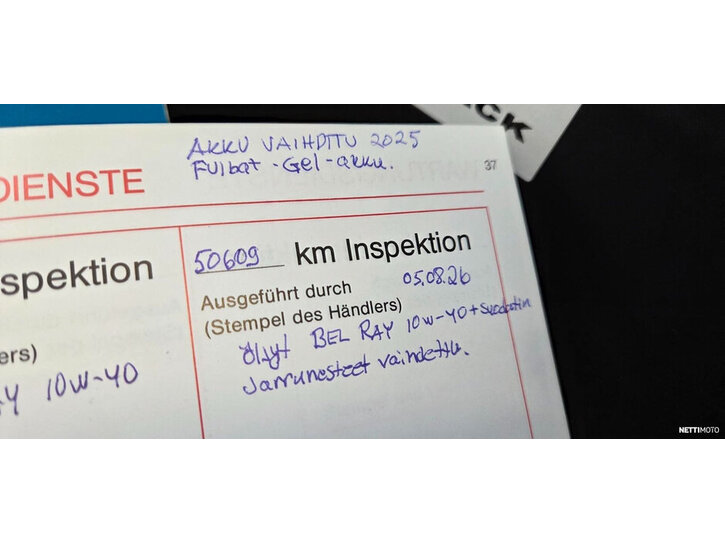 CK
AKKU VAIHDTTU 2025
FUlbat - Gel-akku.
37
DIENSTE
spektion
50609 km Inspektion
Ausgeführt durch 05.08.26
(Stempel des Händlers)
ers)
öljyt BEL RAY 10W-40 + Suodatin
Jarrunesteet vaihdettu.
AY 10W-40
NETTIMOTO